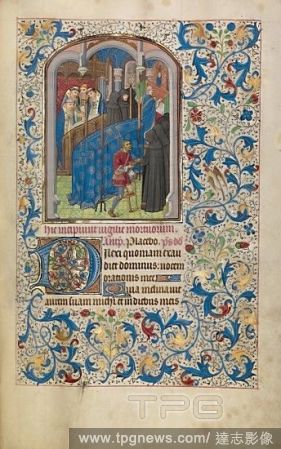 Hic incipiunt vigilie mortuorum
Antp. Placebo. ps dd
Dilexi quoniam exau
diet dominus: vocem
orationis mee
Quia inclinavit
aurem suam michi et in diebus meis
TPG
www.tpgnews.com/ 達志影像